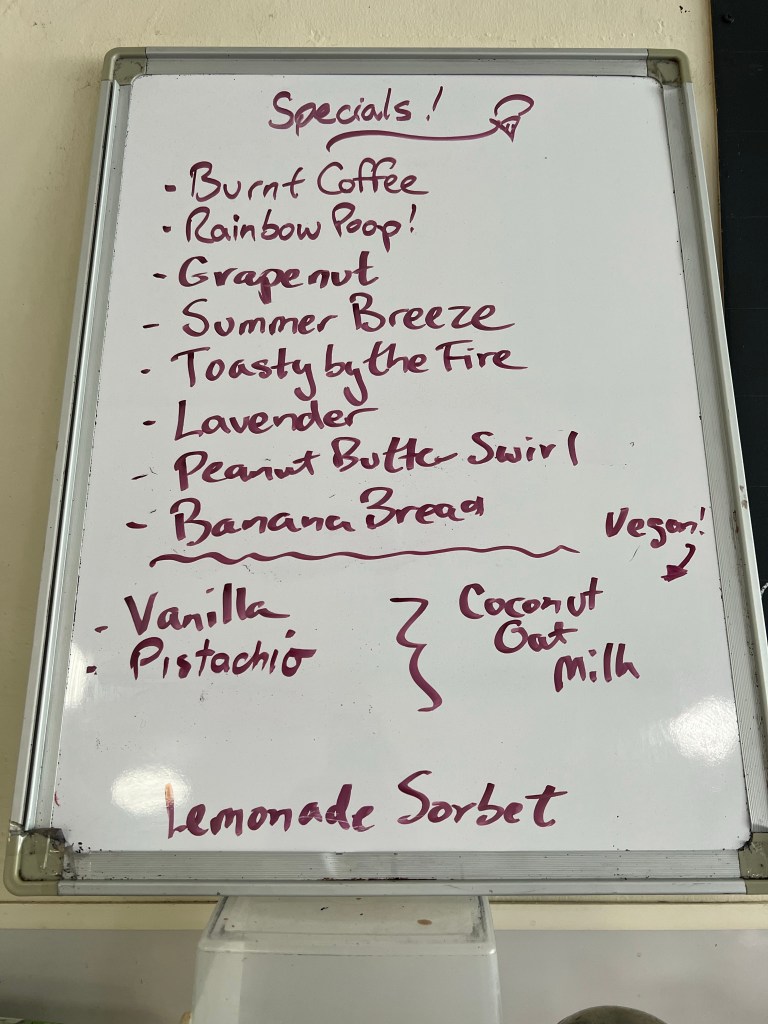 Specials!
- Burnt Coffee
- Rainbow Poop!
- Grapenut
- Summer Breeze
- Toasty by the Fire
- Lavender
- Peanut Butter Swirl
- Banana Bread
Vegan!
- Vanilla
- Pistachio
Coconut
Oat
Milk
Lemonade Sorbet